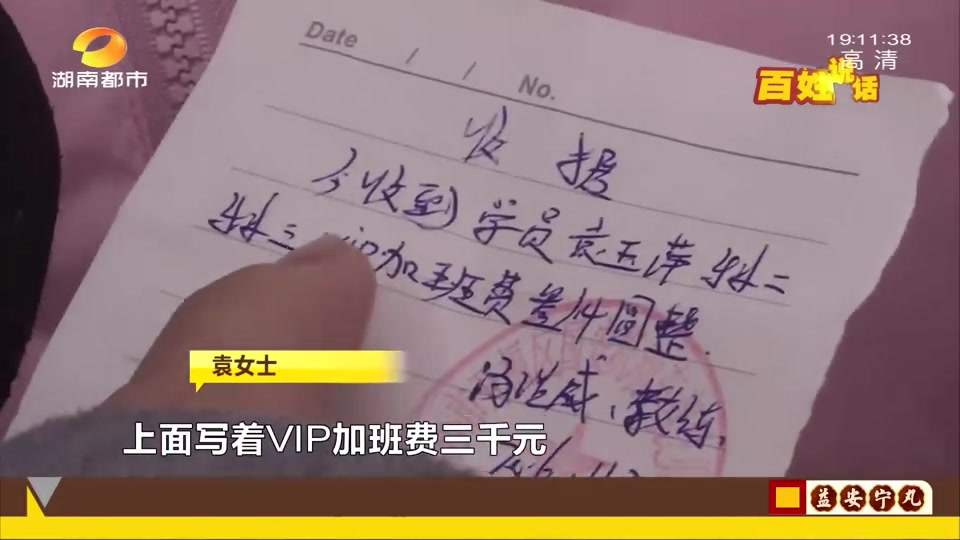 湖南都市
19:11:38
高清
百姓说话
Date / / No.
收据
今收到学员袁玉萍科二
科三VIP加班费叁仟圆整.
教练.
袁女士
上面写着VIP加班费三千元
益安宁丸